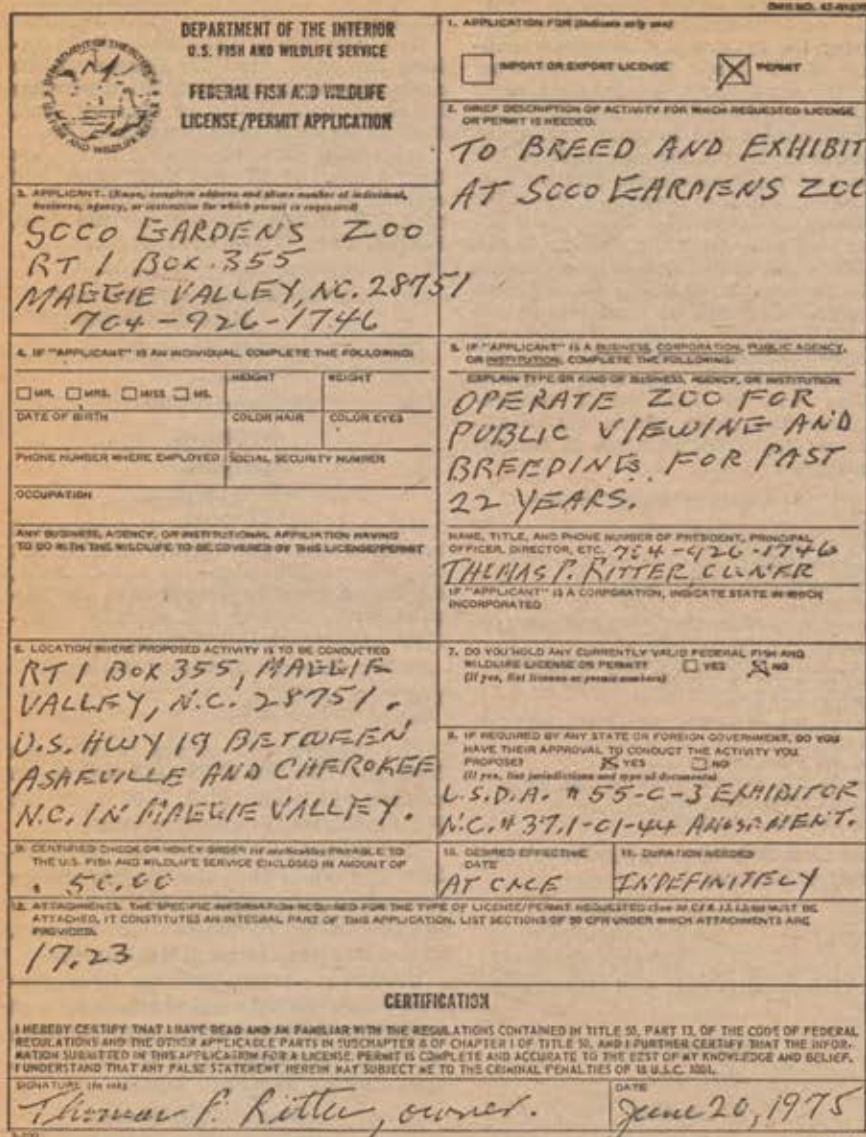 OMB NO. 42-R1670
DEPARTMENT OF THE INTERIOR
U.S. FISH AND WILDLIFE SERVICE
FEDERAL FISH AND WILDLIFE
LICENSE/PERMIT APPLICATION
1. APPLICATION FOR (Indicate only one)
IMPORT OR EXPORT LICENSE
PERMIT
2. BRIEF DESCRIPTION OF ACTIVITY FOR WHICH REQUESTED LICENSE
OR PERMIT IS NEEDED.
TO BREED AND EXHIBIT
AT SOCO GARDENS ZOO
3. APPLICANT. (Name, complete address and phone number of individual,
business, agency, or institution for which permit is requested)
SOCO GARDENS ZOO
RT 1 BOX 355
MAGGIE VALLEY, NC. 28751
704-926-1746
4. IF "APPLICANT" IS AN INDIVIDUAL, COMPLETE THE FOLLOWING:
MR. MRS. MISS MS.
HEIGHT
WEIGHT
DATE OF BIRTH
COLOR HAIR
COLOR EYES
PHONE NUMBER WHERE EMPLOYED
SOCIAL SECURITY NUMBER
OCCUPATION
ANY BUSINESS, AGENCY, OR INSTITUTIONAL AFFILIATION HAVING
TO DO WITH THE WILDLIFE TO BE COVERED BY THIS LICENSE/PERMIT
5. IF "APPLICANT" IS A BUSINESS, CORPORATION, PUBLIC AGENCY,
OR INSTITUTION, COMPLETE THE FOLLOWING:
EXPLAIN TYPE OR KIND OF BUSINESS, AGENCY, OR INSTITUTION
OPERATE ZOO FOR
PUBLIC VIEWING AND
BREEDING FOR PAST
22 YEARS.
NAME, TITLE, AND PHONE NUMBER OF PRESIDENT, PRINCIPAL
OFFICER, DIRECTOR, ETC. 704-926-1746
THOMAS P. RITTER, OWNER
IF "APPLICANT" IS A CORPORATION, INDICATE STATE IN WHICH
INCORPORATED
6. LOCATION WHERE PROPOSED ACTIVITY IS TO BE CONDUCTED
RT 1 BOX 355, MAGGIE
VALLEY, N.C. 28751.
U.S. HWY 19 BETWEEN
ASHEVILLE AND CHEROKEE
N.C. IN MAGGIE VALLEY.
7. DO YOU HOLD ANY CURRENTLY VALID FEDERAL FISH AND
WILDLIFE LICENSE OR PERMIT? YES NO
(If yes, list license or permit numbers)
8. IF REQUIRED BY ANY STATE OR FOREIGN GOVERNMENT, DO YOU
HAVE THEIR APPROVAL TO CONDUCT THE ACTIVITY YOU
PROPOSE? YES NO
(If yes, list jurisdictions and type of documents)
U.S.D.A. # 55-C-3 EXHIBITOR
N.C. # 37.1-01-44 AMUSEMENT.
9. CERTIFIED CHECK OR MONEY ORDER (if applicable) PAYABLE TO
THE U.S. FISH AND WILDLIFE SERVICE ENCLOSED IN AMOUNT OF
$ 50.00
10. DESIRED EFFECTIVE
DATE
AT ONCE
11. DURATION NEEDED
INDEFINITELY
12. ATTACHMENTS. THE SPECIFIC INFORMATION REQUIRED FOR THE TYPE OF LICENSE/PERMIT REQUESTED (See 50 CFR 13.12(b)) MUST BE
ATTACHED, IT CONSTITUTES AN INTEGRAL PART OF THIS APPLICATION. LIST SECTIONS OF 50 CFR UNDER WHICH ATTACHMENTS ARE
PROVIDED.
17.23
CERTIFICATION
I HEREBY CERTIFY THAT I HAVE READ AND AM FAMILIAR WITH THE REGULATIONS CONTAINED IN TITLE 50, PART 13, OF THE CODE OF FEDERAL
REGULATIONS AND THE OTHER APPLICABLE PARTS IN SUBCHAPTER B OF CHAPTER I OF TITLE 50, AND I FURTHER CERTIFY THAT THE INFOR-
MATION SUBMITTED IN THIS APPLICATION FOR A LICENSE, PERMIT IS COMPLETE AND ACCURATE TO THE BEST OF MY KNOWLEDGE AND BELIEF.
I UNDERSTAND THAT ANY FALSE STATEMENT HEREIN MAY SUBJECT ME TO THE CRIMINAL PENALTIES OF 18 U.S.C. 1001.
SIGNATURE (In ink)
Thomas P. Ritter, owner.
DATE
June 20, 1975